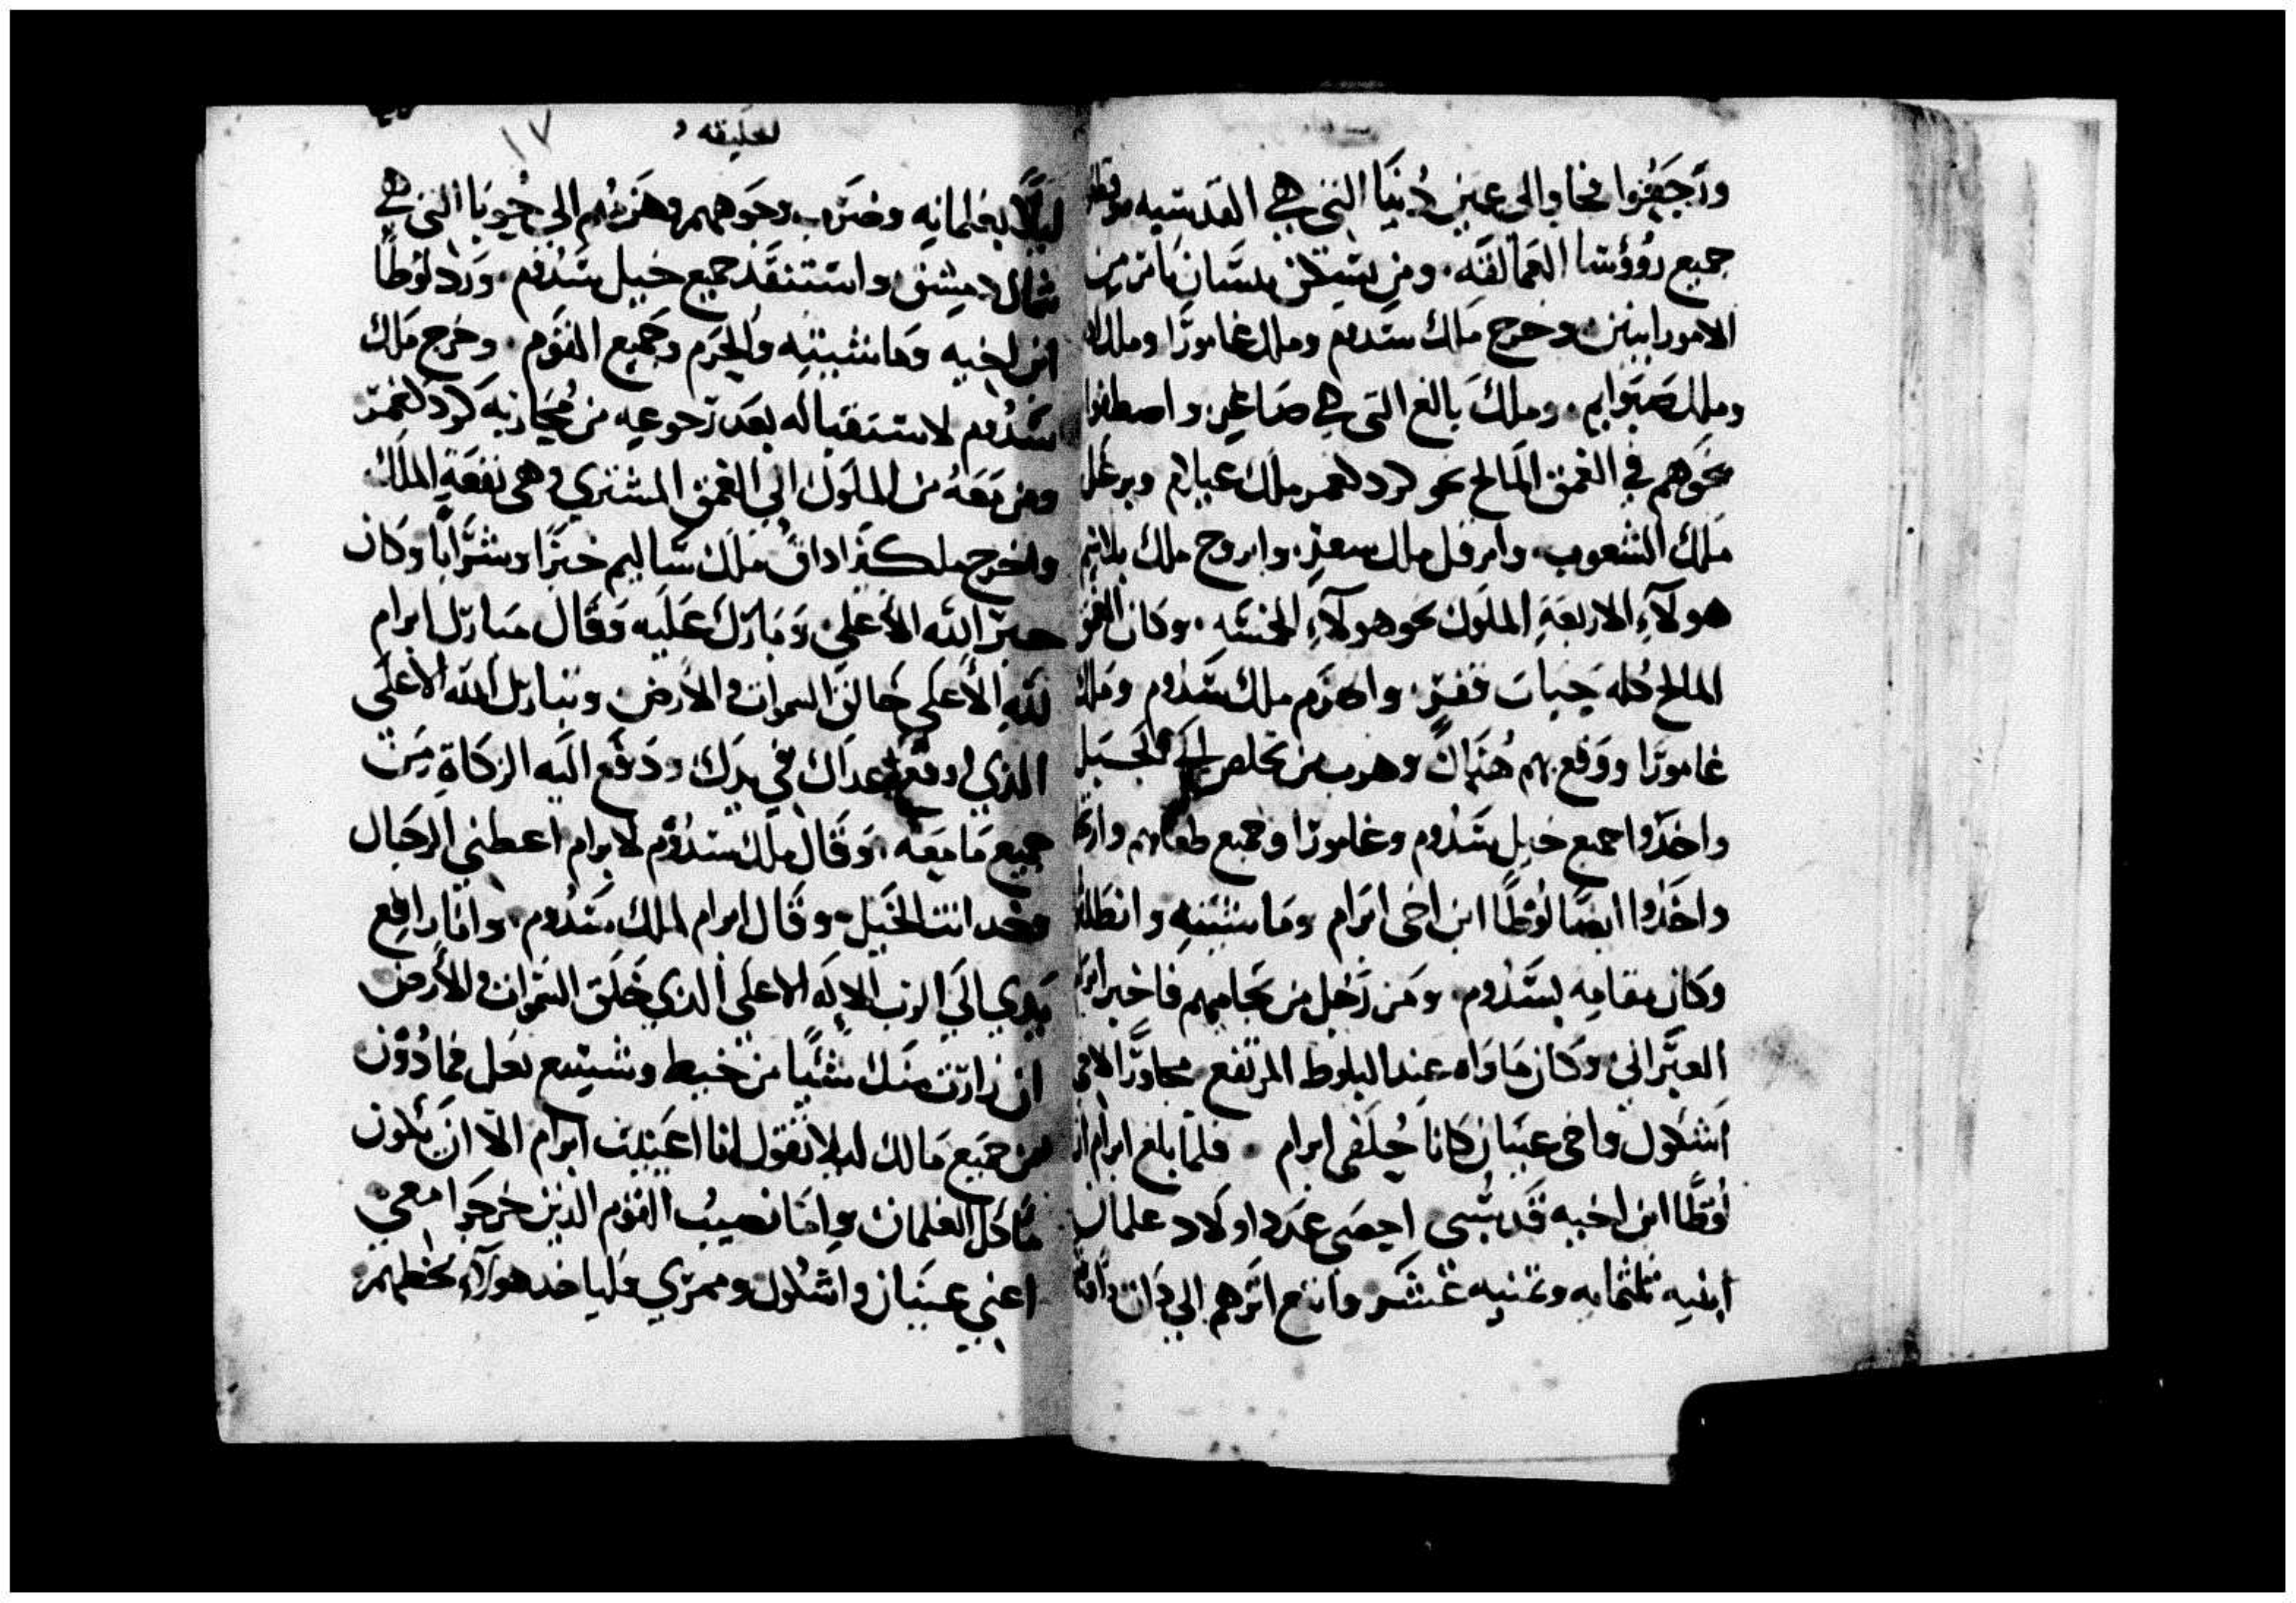 ورَجَعُوا فجاوا الى عين دُنيَا التي هي القدسيه وقطعوا
جميع رُووسَا العَمَالقَه. ومن يسكن بسَّان تامر من
الامورانيين وخرج مَلك سَدوم وملك غامورَا وملك
وملك صَبَوايم. وملك بالغ التى هي صَاغر واصطفوا
نحوَهم في العمق المَالح نحو كردلعمر ملك عيلام وبرغل
ملك الشعوب. وامرفل ملك سعنر. واىروح ملك بلانيم
هولآءِ الاربعَةِ الملوَك نحو هولآءِ الخمسَه. وكان العمق
المالح كله جبابَ قفرٍ. وانهزَم ملك سَدُوم ومَلك
غامورَا ووَقع بهم هُنَاكَ وهرب من تخلص الَى الجَبَل
واخذوا جميع خيلِ سَدُوم وغامورَا وجميع طعامهم وارتحلوا
واخَذُوا ايضًا لوُطًا ابن اخى ابرَام ومَاشيتهِ وانطَلقوا
وكان مقامه بسَدُوم. ومَن رَجُل من نجا منهم فاخبر ابرَام
العبرَاني وكان مَاوَاه عند البلوط المرتفع مجاورًا لاخى
اشكول واخى عيبان كانا حُلفَى ابرام. فلمَا بلغ ابرام ان
لُوطًا ابن اخيه قَد سُبى احصَى عدد اولَاد غلمان
ابنيه ثلثمايه وثمنيه عَشَر واتبع اثرَهم الي دَان وافَاهم
لخليقه
١٧
ليلًا بغلمانهِ وضرَب وجوَههم وهَزمهُم الى حُوبَا التى هي
شمال دمِشق واستنقَذ جميع خيل سَدُوم. وَرَدَ لوُطًا
ابن اخيه ومَاشيتهِ والحرَم وجَميع القوم. وخرج مَلك
سَدُوم لاستقباله بعَد رَجوعهِ من مُحَاربَه كردَلعمَر
ومن مَعَهُ من الملوَك الى العمق المشترى وهى بقعَةِ الملَك
واخرج ملكيزاداق مَلك سَاليم خبزَا وشرَابًا وكان
حبرَ الله الأعلى وَبَارَك عَليه وَقَال مبَارك ابرام
لله الأعلى خَالق السموات والارض وتبارك الله الاعلَى
الذي دفع اعدَاك في يدك ودَفع اليَه الزكاةِ مِن
جميع مَا مَعَه. وَقَال ملك سَدُوم لابرام اعطني الرجَال
وخد انت الخَيل. وقَال ابرام لملك سَدُوم. وانَا رافِع
يَدي الَى الرَب الالَه الاعلَى الذي خَلَق السَموات والأرض
ان زارَت منك شئيًا من خيط وشيسع نعل فما دُوَن
من جَميع مَالك ليلا تقول انا اغنيت ابرام الّا ان يكون
مَا اكل الغلمان وامَا نصيبُ القوَم الذين خَرجوَا معي
اعني عيَبان واشكول وممري فليا خد هولآءِ حظهم